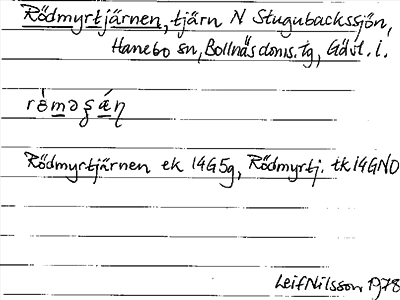 Rödmyrtjärnen, tjärn N Stugubackssjön,
Hanebo sn, Bollnäs doms. tg, Gävl. l.
Rödmyrtjärnen ek 14G5g, Rödmyrtj. tk 14GNO
Leif Nilsson 1978